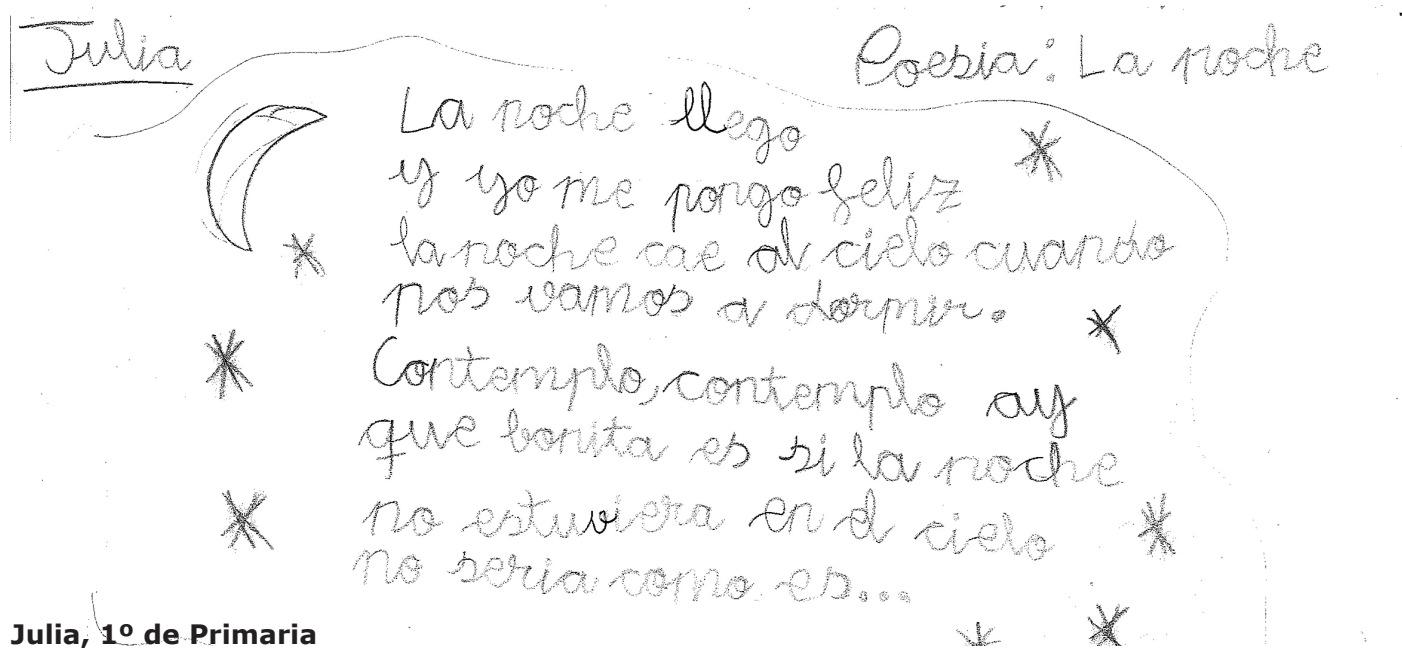 Julia
Poesia: La noche
La noche llego
y yo me pongo feliz
la noche cae al cielo cuando
nos vamos a dormir.
Contemplo, contemplo ay
que bonita es si la noche
no estuviera en el cielo
no seria como es...
Julia, 1º de Primaria